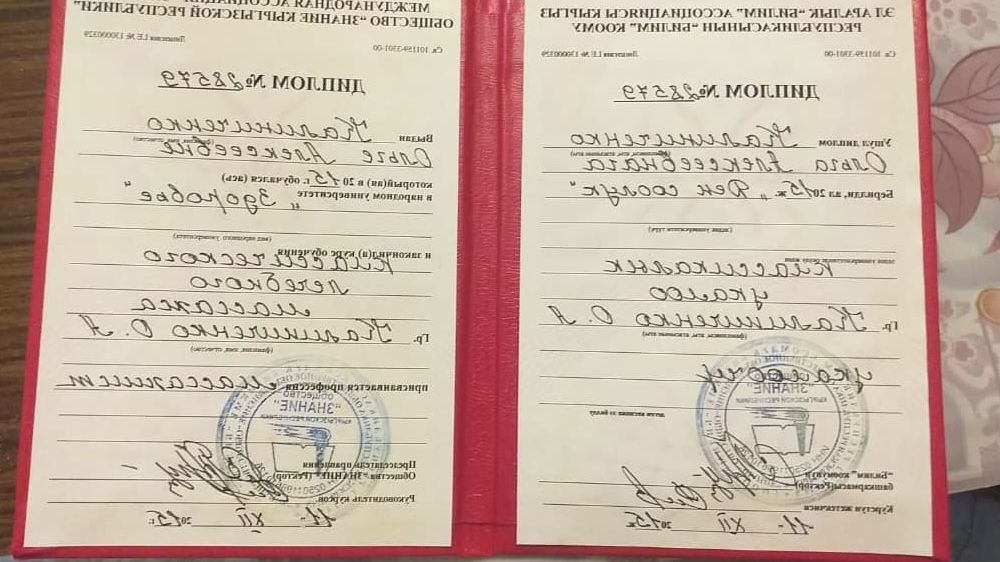 ЭЛ АРАЛЫК "БИЛИМ" АССОЦИАЦИЯСЫ КЫРГЫЗ
РЕСПУБЛИКАСЫНЫН "БИЛИМ" КООМУ
Св. 101159-3301-00 Лицензия LE № 130000329
ДИПЛОМ № 28579
Ушул диплом Калиниченко
Ольга Алексеевнага
Берилди, ал 2015ж. "Ден соолук"
классикалык
укалоо
Гр. Калиниченко О. А
(фамилиясы, аты, атасынын аты)
укалоочу
"Билим" коомунун
башкармасы(Ректор)
Курстун жетекчиси
11- XII 2015ж
МЕЖДУНАРОДНАЯ АССОЦИАЦИЯ
ОБЩЕСТВО "ЗНАНИЕ КЫРГЫЗСКОЙ РЕСПУБЛИКИ"
Св. 101159-3301-00 Лицензия LE № 130000329
ДИПЛОМ № 28579
Выдан Калиниченко
(фамилия, имя, отчество)
Ольге Алексеевне
который(ая) в 2015 г. обучался (ась)
в народном университете "Здоровье"
(вид народного университета)
и закончил(а) курс обучения
классического
лечебного
массажа
Гр. Калиниченко О. А
(фамилия, имя, отчество)
присваивается профессия массажист
ОБЩЕСТВО
"ЗНАНИЕ"
КЫРГЫЗСКОЙ РЕСПУБЛИКИ
Председатель правления
Общества "ЗНАНИЕ" (Ректор)
Руководитель курсов
11- XII 2015 г.